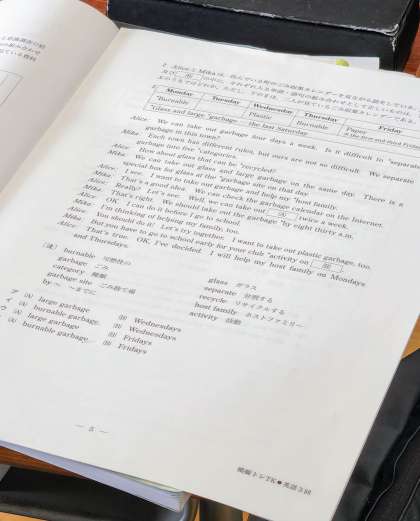 2 AliceとMikaは，住んでいる町のごみ収集カレンダーを見ながら話をしています。
Monday Tuesday Wednesday Thursday Friday
*Burnable Plastic Burnable Paper
*Glass and large *garbage : the last Saturday
Alice: We can take out garbage four days a week. Is it difficult to *separate
garbage in this town?
Mika: Each town has different rules, but ours are not so difficult. We separate
garbage into five *categories.
Alice: How about glass that can be *recycled?
Mika: We can take out glass and large garbage on the same day. There is a
special box for glass at the *garbage site on that day.
Alice: I see. I want to take out garbage and help my *host family.
Mika: That's a good idea. We can check the garbage calendar on the Internet.
Alice: Really? Let's see. Well, we can take out (A) twice a week.
Mika: That's right. We should take out the garbage *by eight thirty a.m.
Alice: OK. I can do it before I go to school.
Mika: I'm thinking of helping my family, too.
Alice: You should do it! Let's try together. I want to take out plastic garbage, too.
Mika: But you have to go to school early for your club *activity on (B).
Alice: That's true. OK, I've decided. I will help my host family on Mondays
and Thursdays.
（注） burnable 可燃性の glass ガラス
garbage ごみ separate 分別する
category 種類 recycle リサイクルする
garbage site ごみ捨て場 host family ホストファミリー
by ～ ～までに activity 活動
ア (A) large garbage (B) Wednesdays
イ (A) burnable garbage (B) Wednesdays
ウ (A) large garbage (B) Fridays
(A) burnable garbage (B) Fridays
— 5 —
模擬トレTK●英語3回